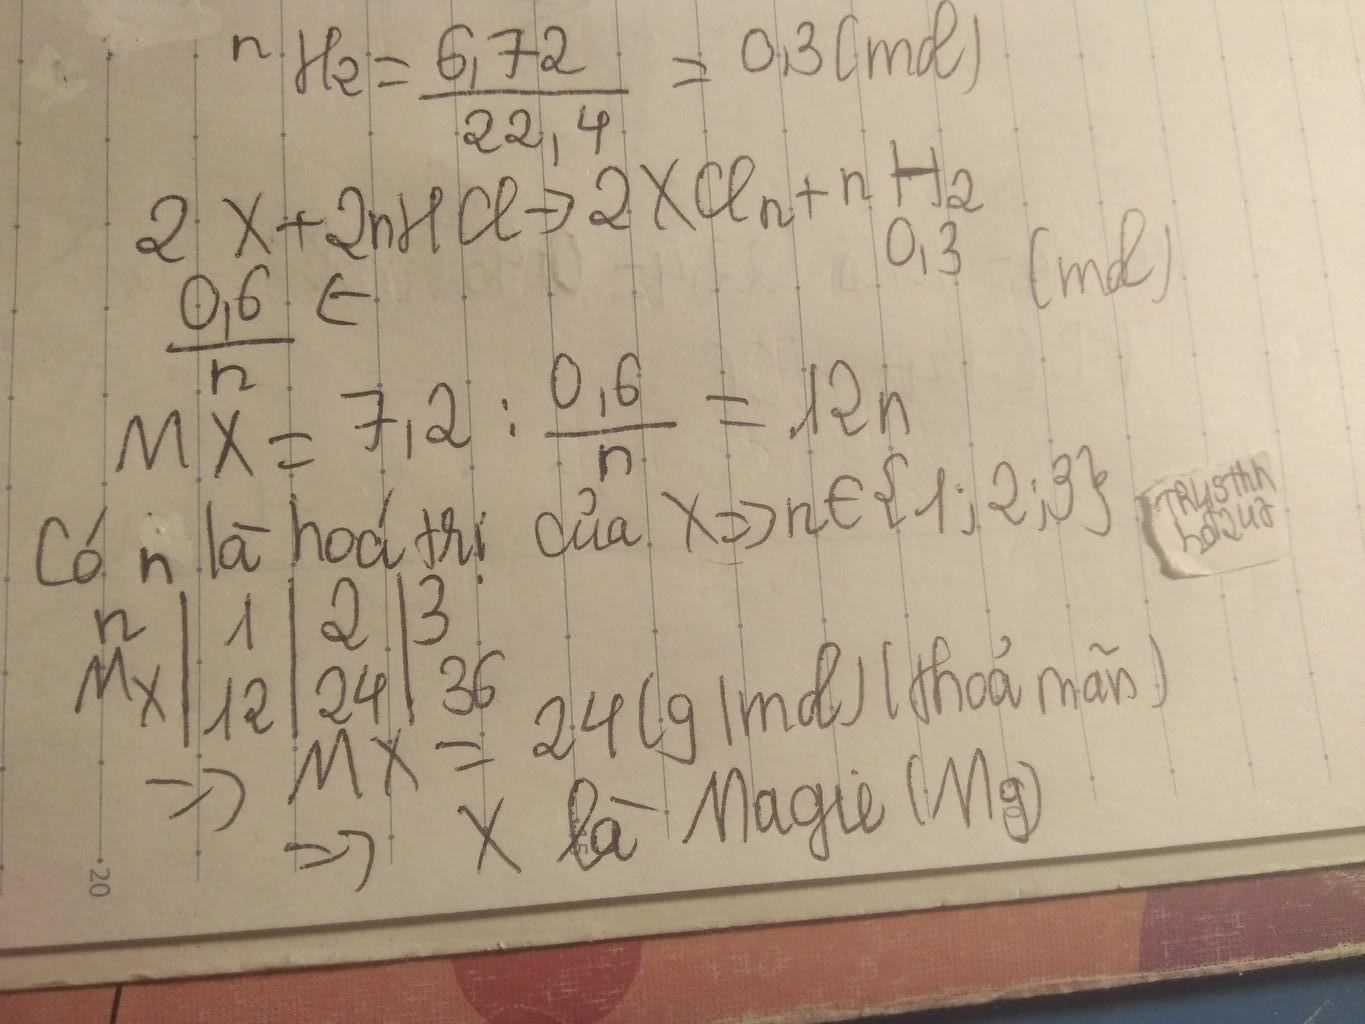 n H2 = 6,72 / 22,4 = 0,3 (mol)
2X + 2nHCl → 2XCln + nH2
0,6 / n ← 0,3 (mol)
MX = 7,2 : 0,6 / n = 12n
Có n là hoá trị của X => n ∈ {1; 2; 3}
n | 1 | 2 | 3
MX | 12 | 24 | 36
=> MX = 24 (g/mol) (thoả mãn)
=> X là Magie (Mg)
20